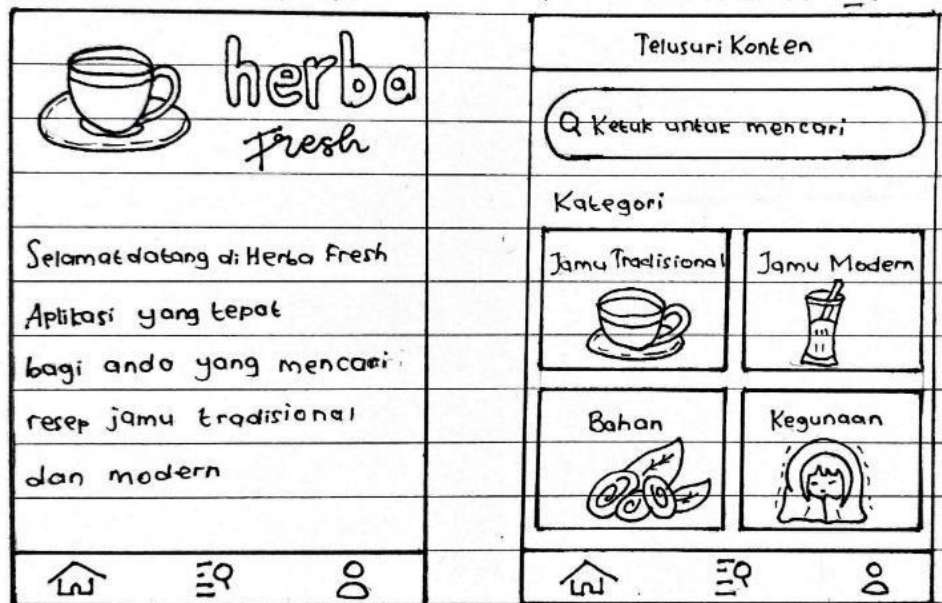 herba
Fresh
Selamat datang di Herba Fresh
Aplikasi yang tepat
bagi anda yang mencari
resep jamu tradisional
dan modern
Telusuri Konten
Ketuk untuk mencari
Kategori
Jamu Tradisional
Jamu Modern
Bahan
Kegunaan